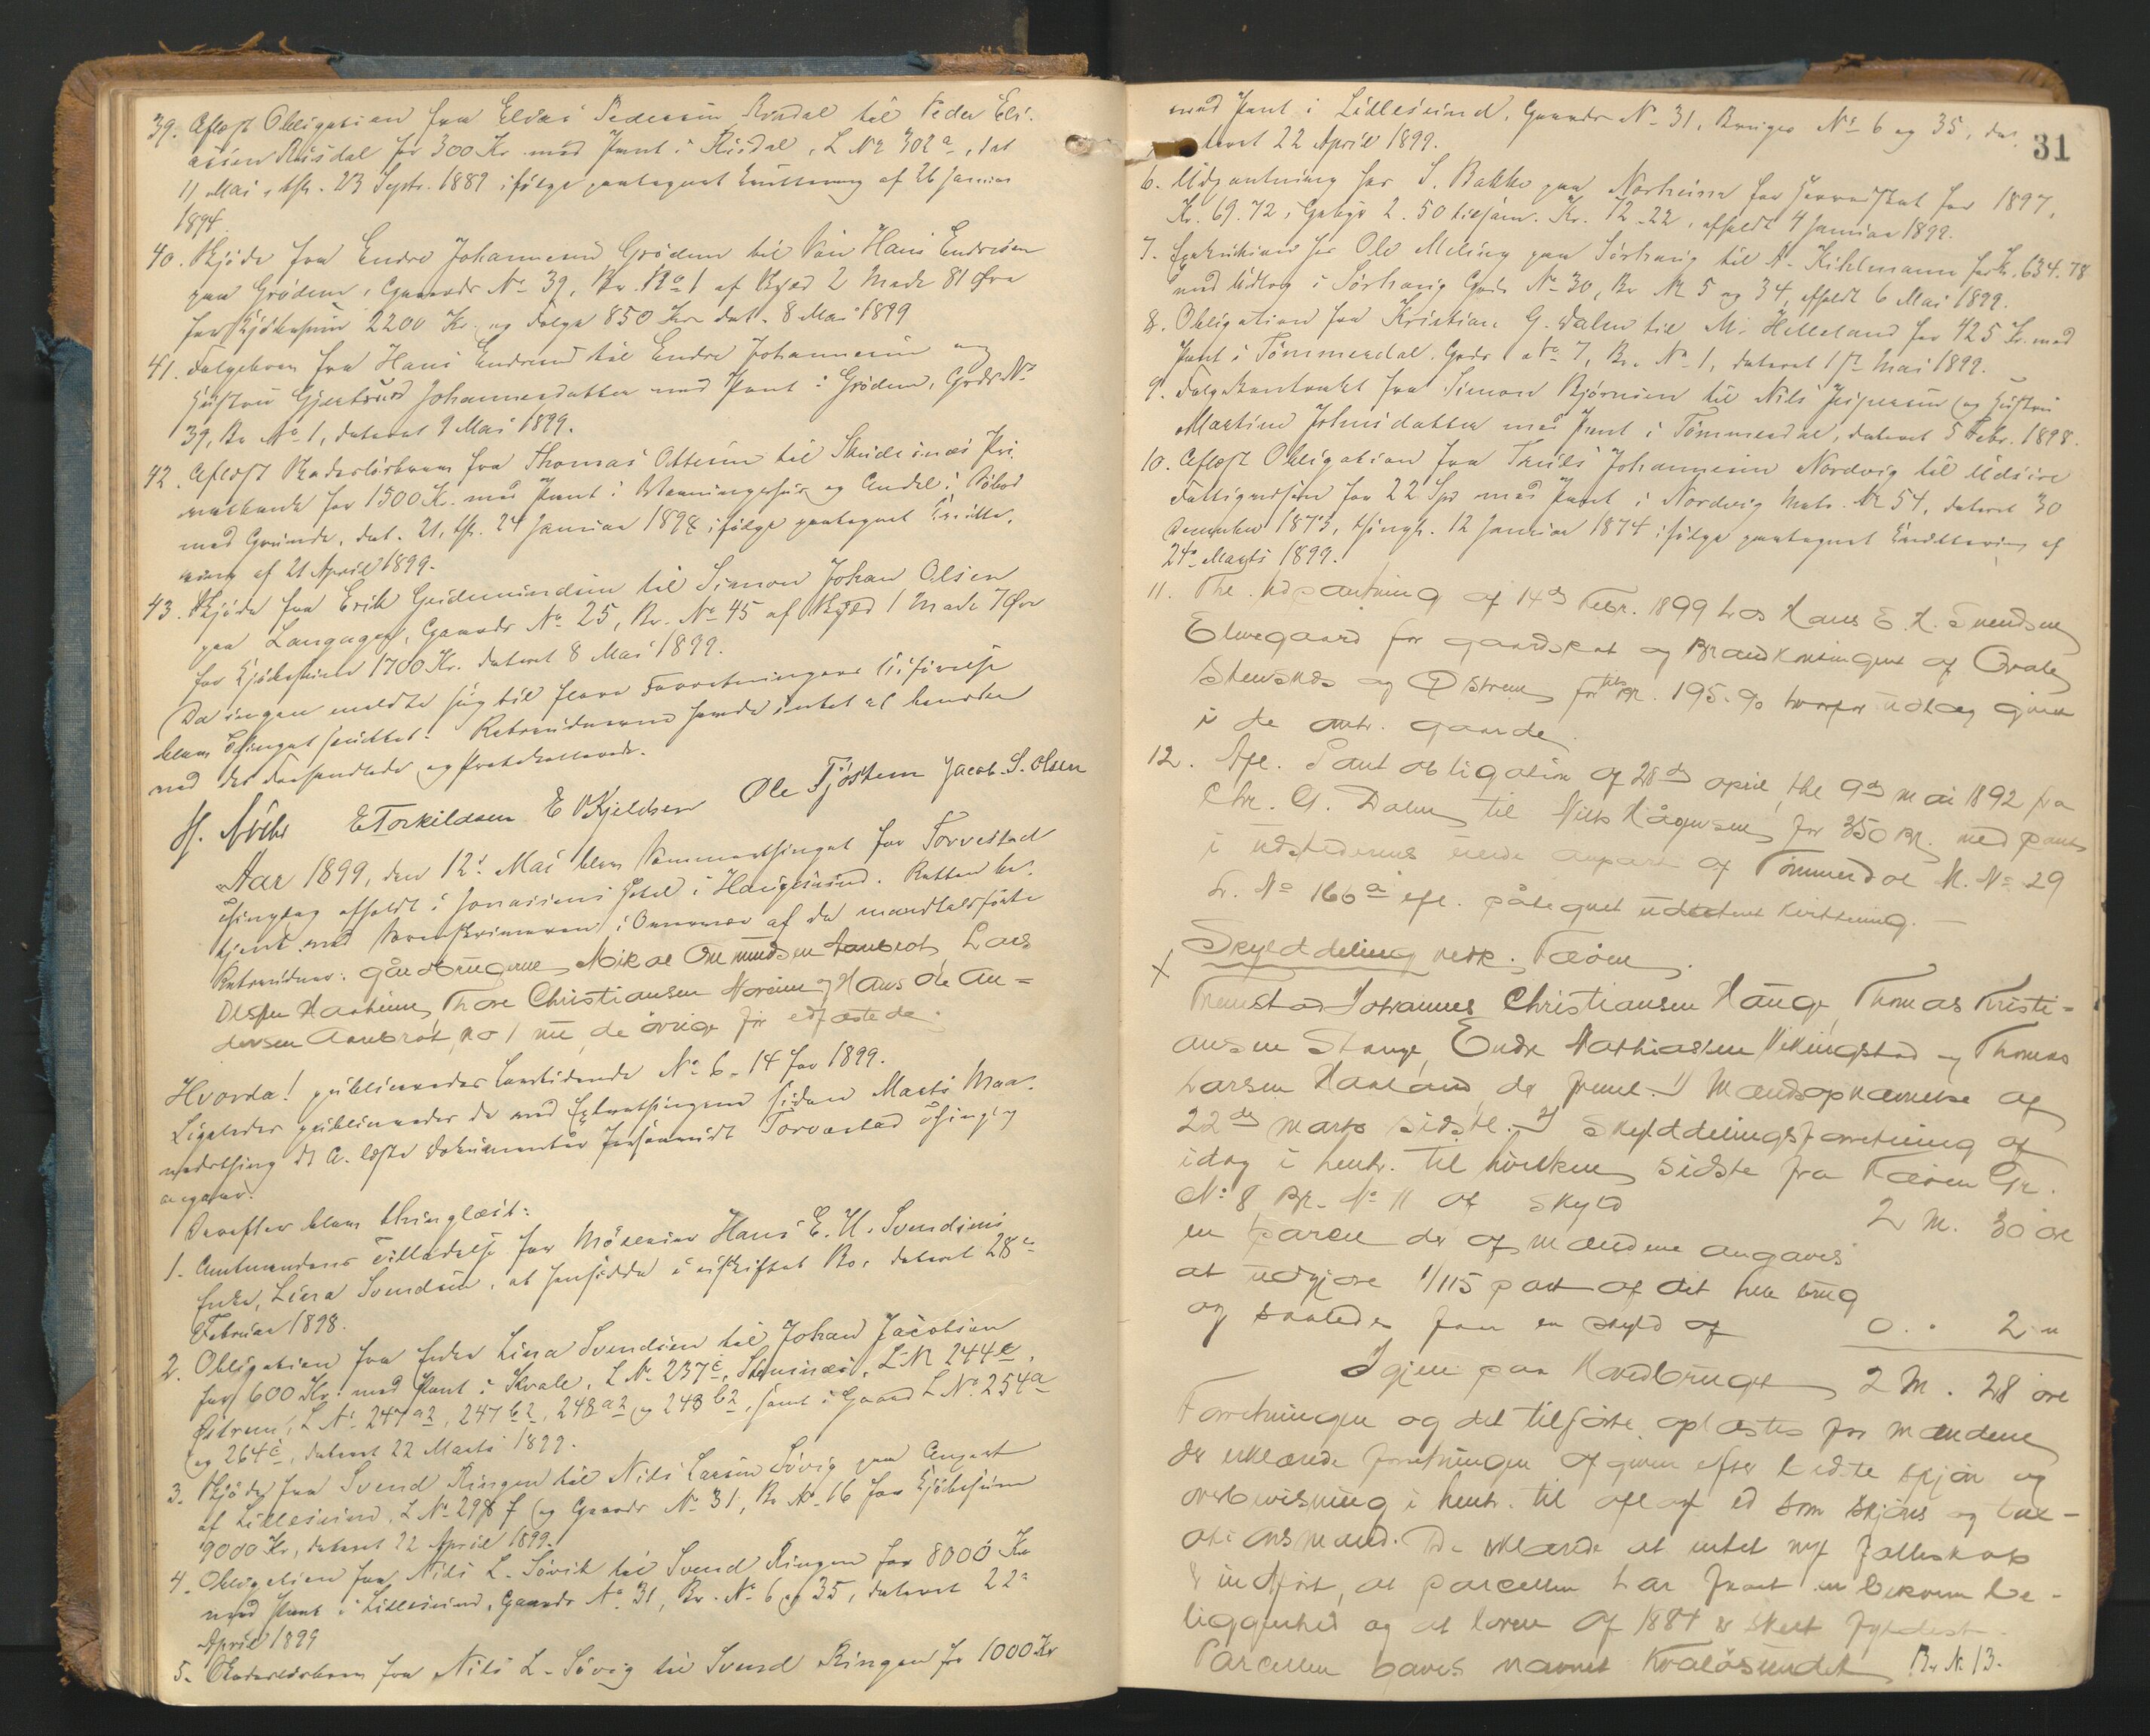 39. Aflæst Obligation fra Elias Pedersen Risdal til Peder Eli-
assen Risdal for 300 Kr. med Pant i Risdal, L No 302a, dat
11 Mai, thl. 23 Septr. 1889 ifølge paategnet Kvittering af 26 Januar
1894.
40. Skjöde fra Endre Johannesen Gröden til Sön Hans Endresen
paa Gröden, Gaards No 39, Br. No 1 af Skyld 2 Mark 81 Öre
for Kjöbesum 2200 Kr. og Folge 850 Kr. dat. 8 Mai 1899
41. Folgebrev fra Hans Endresen til Endre Johannesen og
Hustru Gjertrud Johannesdatter med Pant i Gröden, Gards No
39, Br. No 1, dateret 9 Mai 1899.
42. Aflæst Skadeslösbrev fra Thomas Ottesen til Skudesnæs Pri-
vatbank for 1500 Kr. med Pant i Vaaningshus og Andel i Söbod
med Grunde, dat. 21, thl. 24 Januar 1898 ifølge paategnet Kvitte-
ring af 21 April 1899.
43. Skjöde fra Erik Gudmundsen til Simon Johan Olsen
paa Langager, Gaards No 25, Br. No 45 af Skyld 1 Mark 7 Öre
for Kjöbesum 1700 Kr. dateret 8 Mai 1899.
Da ingen meldte sig til flere Forretningers Udførelse
blev Thinget sluttet. Retsvidnerne havde intet at bemerke
ved det Forhandlede og Protokollerede.
E Torkildsen E Kjeldsen Ole Fjöstem Jacob. S. Olsen
Aar 1899, den 12. Mai blev Sommerthinget for Torvestad
Thinglag afholdt i Jonasens Hotel i Haugesund. Retten be-
tjent med Sorenskriveren i Overvær af de mandtalsförte
Retsvidner: gårdbrugerne Mikal Omundsen Aanbrot, Lars
Olsen Haaheim, Thore Christiansen Noreim og Hans Ole An=
dersen Aanbrot, no 1 nu, de övrige för edfæstede.
Hvorda! publiceredes Lovtidende No 6-14 for 1899.
Ligeledes publiceredes de ved Extrathingene siden Marts Maa-
nedsthing d. A. læste Dokumenter forsaavidt Torvestad Thinglag
angaar.
Derefter blev thinglæst:
1. Amtmandens Tilladelse for Möller Hans E. H. Svendsens
Enke, Lina Svendsen, at hensidde i uskiftet Bo, dateret 28de
Februar 1898.
2. Obligation fra Enke Lina Svendsen til Johan Jacobsen
for 600 Kr. med Pant i Kvale, L No 237c, Stensnæs, L No 244e,
Östrem, L No 247a2, 247b2, 248a2 og 248b2, samt i Gaard L No 254a
og 264c, dateret 22 Marts 1899.
3. Skjöde fra Svend Ringen til Nils Larsen Sövig paa Anpart
af Lillesund, L No 298f og Gaards No 31, Br No 16 for Kjöbesum
9000 Kr, dateret 22 April 1899.
4. Obligation fra Nils L. Sövik til Svend Ringen for 8000 Kr
med Pant i Lillesund, Gaards No 31, Br. No 6 og 35, dateret 22de
April 1899
5. Skadeslösbrev fra Nils L. Sövig til Svend Ringen for 1000 Kr
31
med Pant i Lillesund, Gaards No 31, Bruges No 6 og 35, da-
teret 22 April 1899.
6. Udpantning hos S. Bakke paa Norheim for Herredskat for 1897,
Kr. 69.72, Gebyr 2.50 tilsam. Kr. 72.22, afholdt 4 Januar 1899.
7. Exekution hos Ole Meling paa Sörhaug til A. Kihlmann for Kr. 634.78
med Udlæg i Sörhaug Gards No 30, Br No 5 og 34, afholdt 6 Mai 1899.
8. Obligation fra Kristian G. Dalen til M. Helleland for 425 Kr. med
Pant i Tömmerdal Gards No 7, Br. No 1, dateret 1ste Mai 1899.
9. Folgekontrakt fra Simon Bjørnsen til Nils Jespersen og Hustru
Martine Johnsdatter med Pant i Tömmerdal, dateret 5 Febr. 1898.
10. Aflæst Obligation fra Truls Johannesen Nordvig til Udsire
Fattigvæsen for 22 Spd med Pant i Nordvig Matr. No 54, dateret 30
December 1873, thingl. 12 Januar 1874 ifølge paategnet Kvittering af
24de Marts 1899.
11. Thl. Udpantning af 14de Febr. 1899 hos Hans E. H. Svendsen
Elvegaard for gaardskat og Brandkontingent af Qvale,
Stensnæs og Østrem for tils Kr. 195.90 hvorfor udlæg givet
i de omh. gaarde.
12. Afl. Pantobligation af 28de april, thl 9de mai 1892 fra
Chr. G. Dalen til Nils Hågensen for 350 Kr. med pant
i udstederens eiende anpart af Tömmerdal M. No 29
L. No 166a efl. påtegnet udateret kvittering. -
x Skylddeling vedk. Feöen.
Fremstod Johannes Christiansen Hauge, Thomas Kristi-
ansen Stange, Endre Mathiassen Vikingstad og Thomas
Larsen Haaland, der freml. 1) Mændsopnævnelse af
22de marts sidstl. 2) Skylddelingsforretning af
idag i henh. til hvilken sidste fra Feöen Gr.
No 8 Br. No 11 af Skyld 2 M. 30 öre
en parcel der af mændene angaves
at udgjöre 1/115 part af det hele brug
og saaledes faar en skyld af 0 .. 2 "
Igjen paa Hovedbruget 2 M. 28 öre
Forretningen og det tilförte oplæstes for mændene
der erklærede forretningen afgiven efter bedste skjön og
overbevisning i henh. til aflagt ed som skjöns og tax-
ationsmænd. De erklærede at intet nyt fælleskab
er indfört, at parcellen har faaet en bekvem be-
liggenhed og at loven af 1884 er skeet fyldest.
Parcellen gaves navnet Kvalösundet Br No 13.